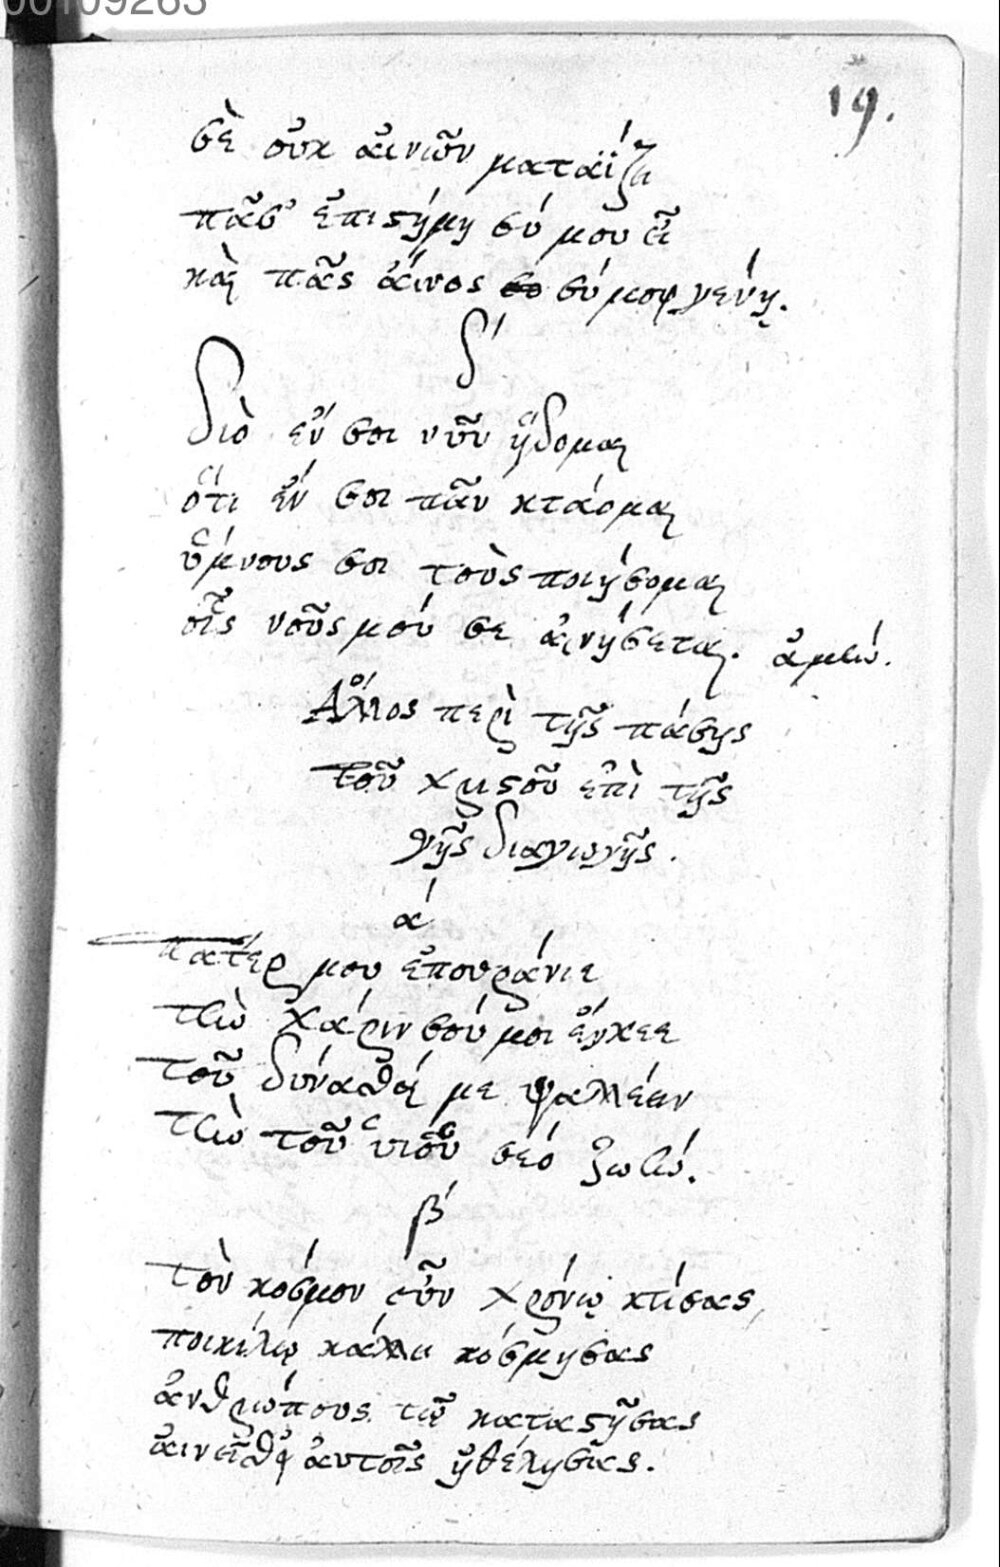 00109263
19.
σὲ οὐκ αἰνῶν ματαΐζει
πᾶσ' ἐπιστήμη σύ μου εἶ
καὶ πᾶς αἶνος σύ μοι γένῃ.
δ΄
διὸ ἐν σοι νῦν ἥδομαι
ὅτι ἐν σοι πᾶν κτάομαι
ὕμνους σοι τοὺς ποιήσομαι
οἷς νοῦς μού σε αἰνήσεται. ἀμήν.
Ἄλλος περὶ τῆς πάσης
τοῦ χριστοῦ ἐπὶ τῆς
γῆς διαγωγῆς.
ά
πάτερ μου ἐπουράνιε
τὴν χάριν σού μοι ἔγχεε
τοῦ δύνασθαί με ψαλλέειν
τὴν τοῦ υἱοῦ σέο ζωήν.
β΄
τὸν κόσμον σὺν χρόνῳ κτίσας,
ποικίλῳ κάλλει κόσμησας
ἀνθρώπους τῷ καταστήσας
αἰνεῖσθαι αὐτοῖς ἠθέλησας.